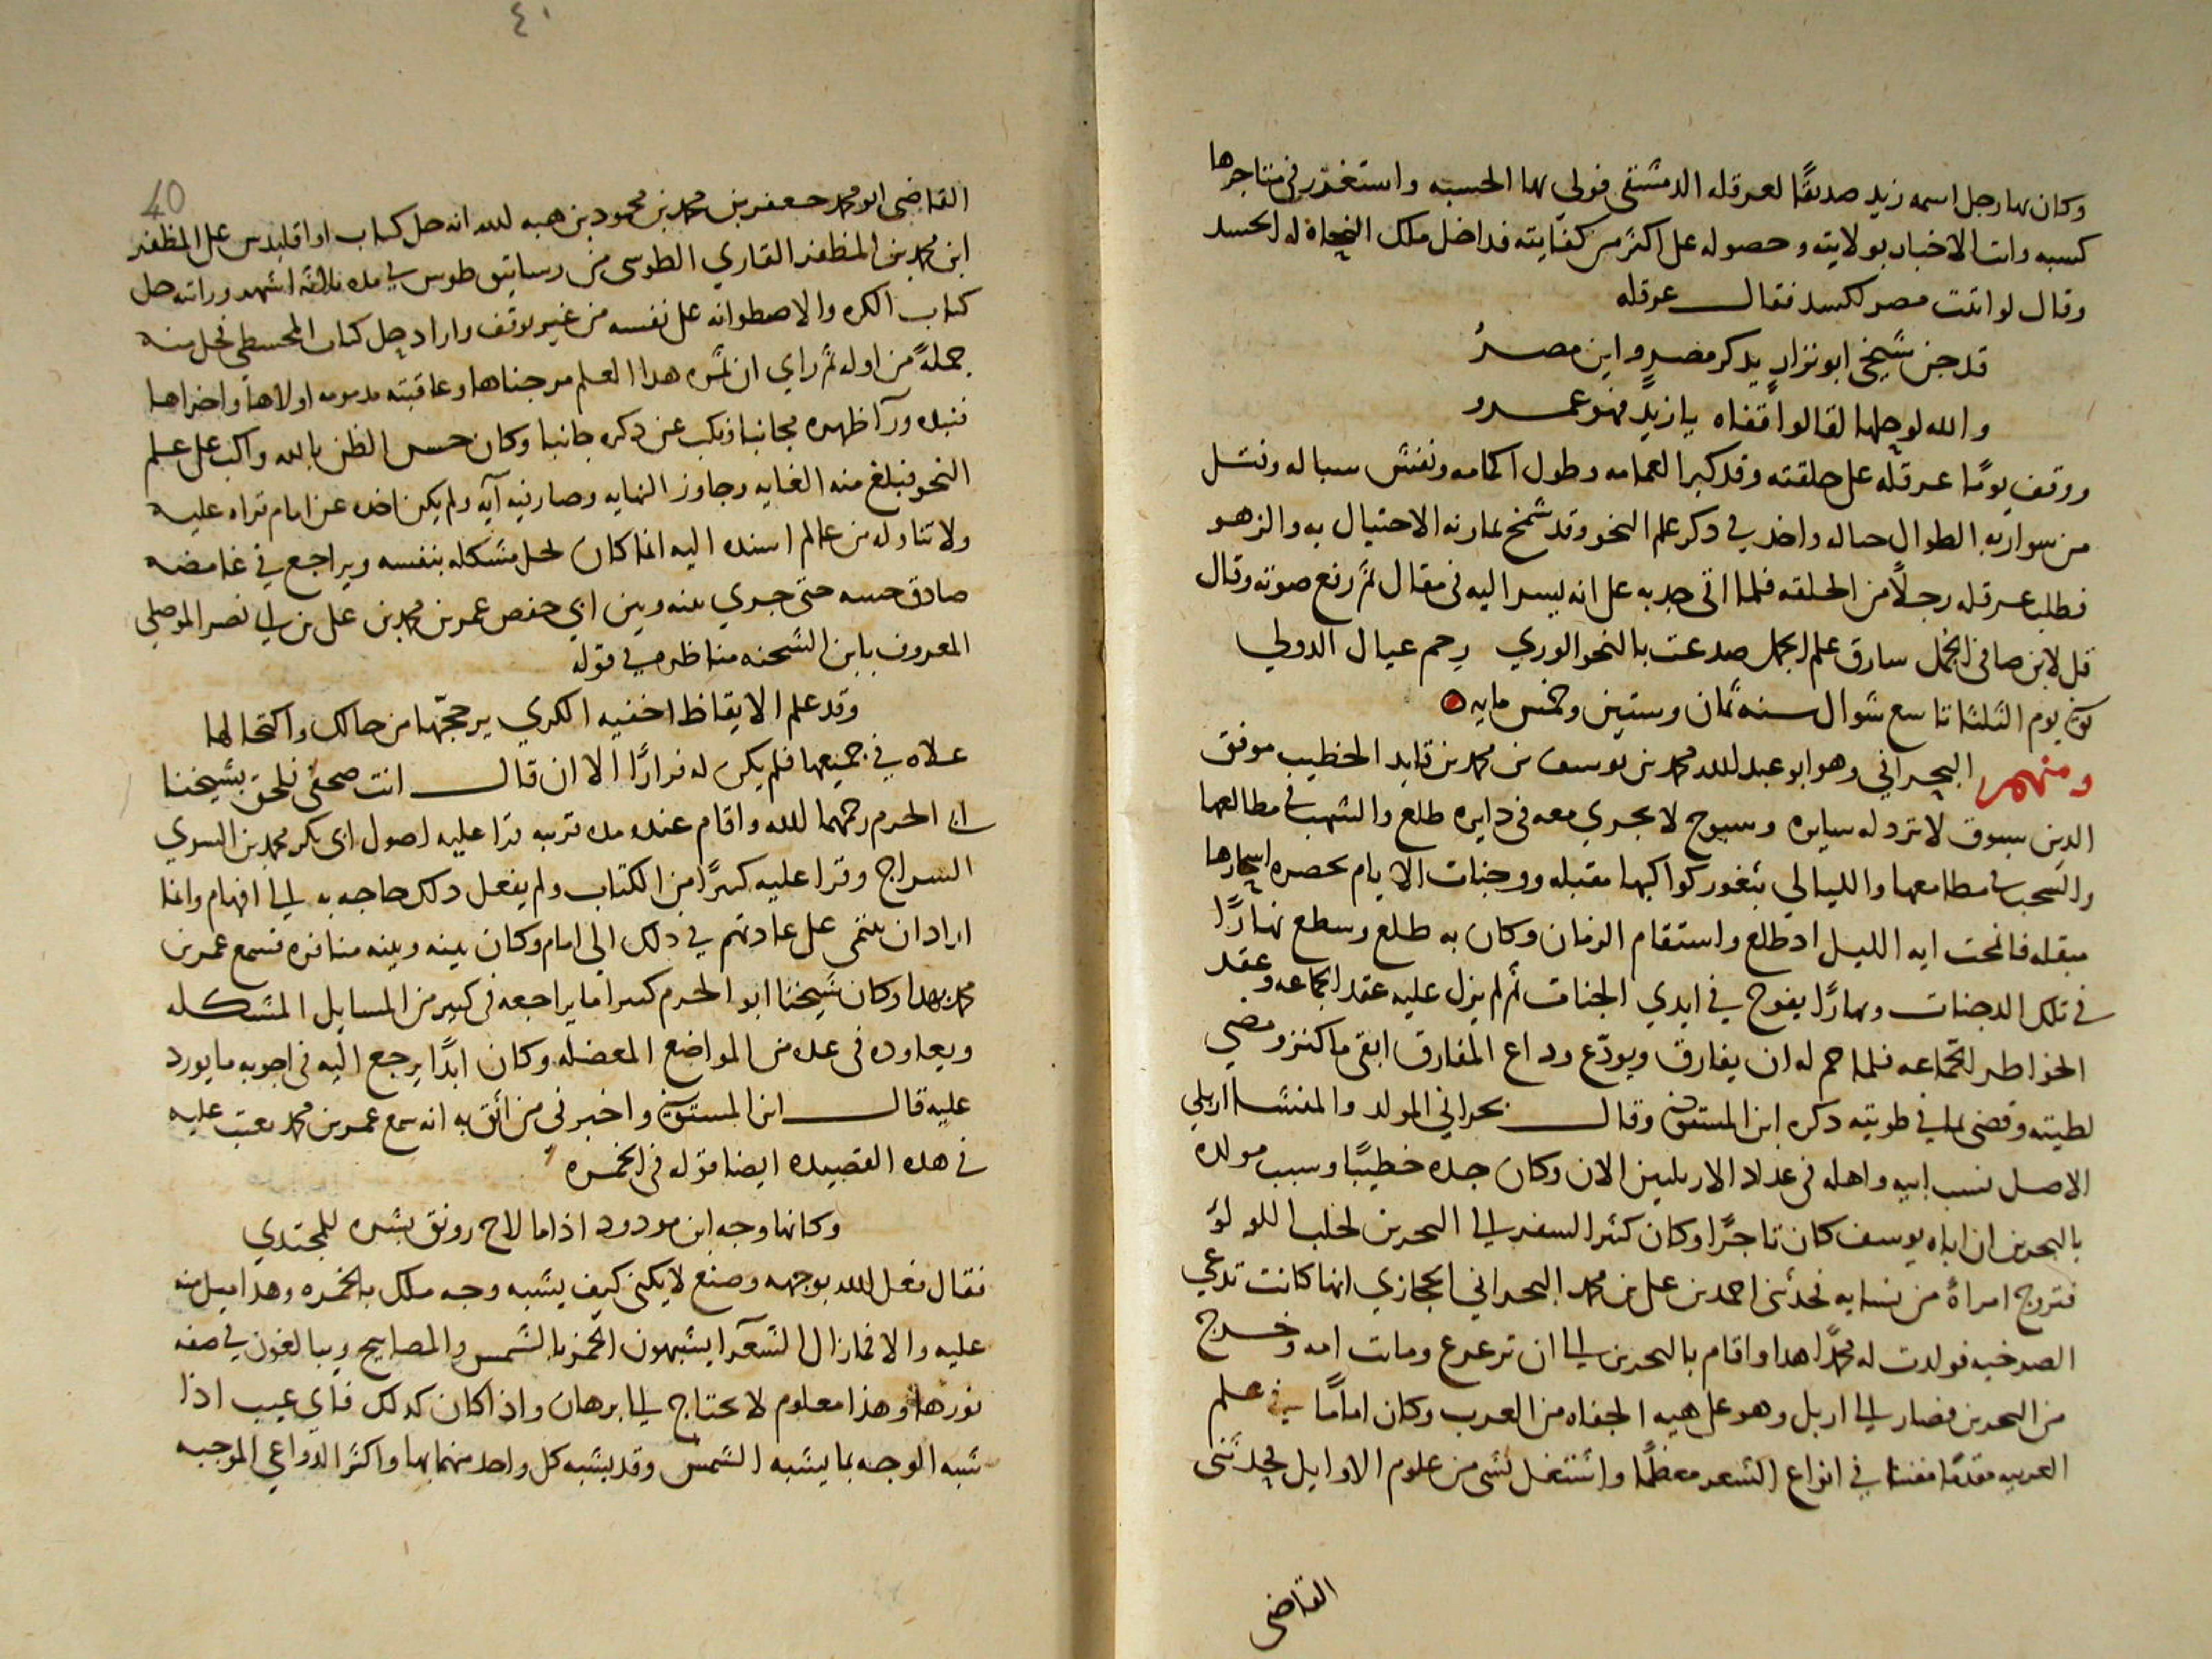 وكان بها رجل اسمه زيد صديقًا لعرقله الدمشقى فولي بها الحسبه واستغرر فى متاجرها
كسبه واتت الاخبار بولايته وحصوله على اكثر من كفايته فداخل ملك النحاة له الحسد
وقال لو اتت مصر لكسد فقال عرقله
قد جن شيخي ابو نزارٍ يذكر مصرٍ واين مصرُ
والله لو حلها لقالوا قفاه يا زيدٍ فهو عمرو
ووقف يومًا عرقله على حلقته وقد كبر العمامه وطول اكمامه ونفش سباله ونتـل
من سواربه الطوال حباله واخذ في ذكر علم النحو وقد شمخ بمارنه الاختيال به والزهو
فطلب عرقله رجلًا من الحلقه فلما اتى جد به على انه يسر اليه فى مقال ثم رفع صوته وقال
قل لابن صافى الجمل سارق علم الجمل صدعت بالنحو الوري رحم عيال الدولي
توفى يوم الثلثا تاسع شوال سنه ثمان وستين وخمس مايه
ومنهم البحراني وهو ابو عبد الله محمد بن يوسف بن محمد بن قايد الخطيب موفق
الدين سبوق لا ترد له سايره وسبوح لا يجري معه فى دايره طلع والشهب فى مطالعها
والسحب فى مطامعها والليالي بثغور كواكبها مقبله ووجنات الايام بحضره اسحارها
مبقله فانمحت ايه الليل اد طلع واستقام الزمان وكان به طلع وسطع نهارًا
في تلك الدجنات وبهارًا يفوح في ايدي الجنات ثم لم يزل عليه عقد الجماعه وعقد
الخواطر لجماعه فلما حم له ان يفارق ويودّع وداع المفارق ابقى ما كنز ومضي
لطيته وقضى ما في طويته ذكره ابن المستوفى وقال بحراني المولد والمنشا اربلي
الاصل نسب ابيه واهله فى عداد الاربليين الان وكان جده خطيبًا وسبب مولده
بالبحرين ان اباه يوسف كان تاجرًا وكان كثير السفر الي البحرين لجلب اللولوُ
فتزوج امراةً من نسايه فحدثنى احمد بن على بن محمد البحراني الحجازي انها كانت تدعي
الصدخيه فولدت له محمدًا هذا واقام بالبحرين الي ان ترعرع وماتت امه وخرج
من البحرين فصار الي اربل وهو على هيه الجفاه من العرب وكان امامًا في علم
العربيه مقدمًا مفننا في انواع الشعر معظمًا واشتغل بشى من علوم الاوايل فحدثنى
القاضى
٤٠
40
القاضى ابو محمد جعفر بن محمد بن محمود بن هبه لله انه حل كتاب اواقليدس على المظفر
ابن محمد بن المظفر القاري الطوسى من رساتيق طوس في مده ثلاثة اشهر وراته حل
كتاب الكره والاصطوانه على نفسه من غير توقف واراد حل كتاب المجسطى فحل منه
جملةً من اوله ثم راي ان ثمره هذا العلم مر جناها وعاقبته مذمومه اولاها واخراها
فنبذه ورآ ظهره مجانبا ونكب عن ذكره جانبا وكان حسن الظن بالله واكب على علم
النحو فبلغ منه الغايه وجاوز النهايه وصار فيه آيه ولم يكن اخذه عن امام قراه عليه
ولا تناوله من عالم اسنده اليه انما كان لحل مشكله بنفسه ويراجع في غامضه
صادق حسه حتى جري بينه وبين ابي حفص عمر بن محمد بن على بن ابي نصر الموصلي
المعروف بابن الشحنه مناظره في قوله
وقد علم الايقاظ اخفيه الكري يرججّها من حالك واكتحالها
علاه في جميعها فلم يكن له فرارًا الا ان قال انت صحفى فلحق بشيخنا
ابي الحرم رحمهما لله واقام عنده مده قريبه قرا عليه اصول ابى بكر محمد بن السري
السراج وقرا عليه كثيرًا من الكتاب ولم يفعل ذلك حاجه به الي افهام وانما
اراد ان ينتمى على عادتهم في ذلك الي امام وكان بينه وبينه منافره فسمع عمر بن
محمد بهذا وكان شيخنا ابو الحرم كثيرا ما يراجعه فى كثير من المسايل المشكله
ويعاوده فى عده من المواضع المعضله وكان ابدًا يرجع اليه فى اجوبه ما يورد
عليه قال ابن المستوفى واخبرنى من اثق به انه سمع عمر بن محمد يعتب عليه
في هذه القصيده ايضا قوله فى الخمره
وكانها وجه ابن مودود اذا ما لاح رونق بشره للمجتدي
فقال فعل الله بوجهه وصنع لا يكنى كيف يشبه وجه ملك بالخمره وهذا ميل منه
عليه والا فما زال الشعرآ يشبهون الخمر بالشمس والمصابيح ويبالغون في صفه
نورها وهذا معلوم لا يحتاج الي برهان واذا كان كذلك فاي عيب اذا
شبه الوجه بما يشبه الشمس وقد يشبه كل واحد منهما بها واكثر الدواعي الموجبه